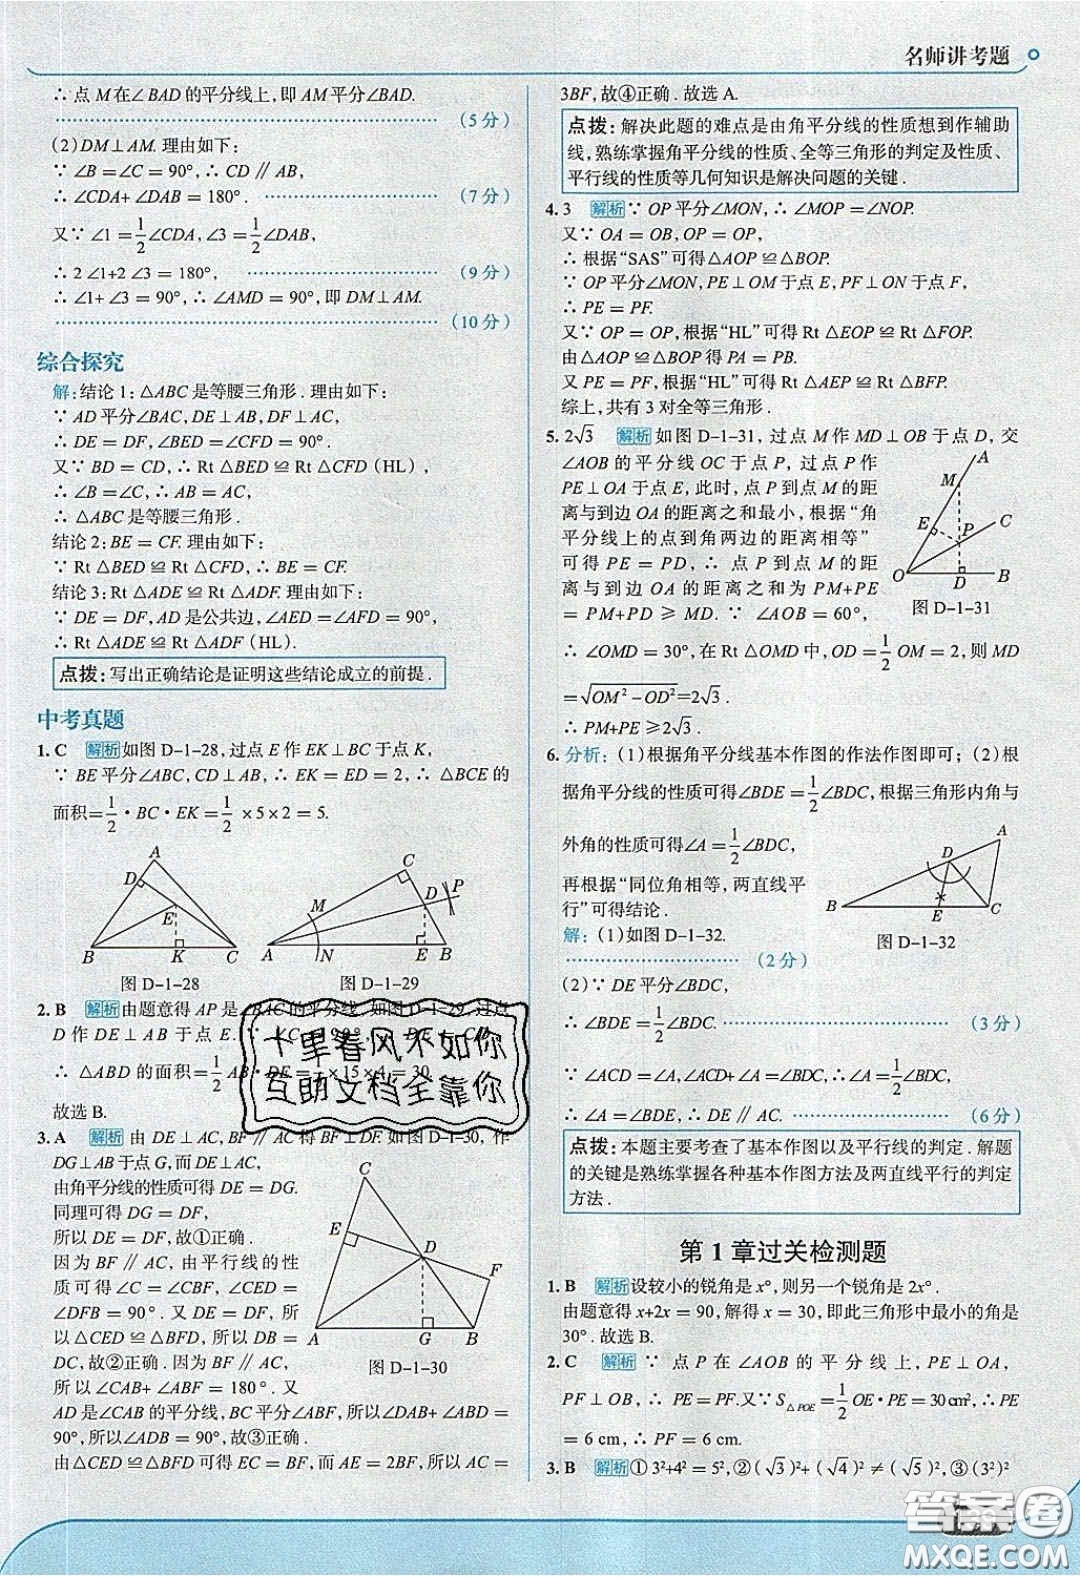 名师讲考题
∴ 点 M 在∠BAD 的平分线上,即 AM 平分∠BAD.
(5 分)
(2)DM⊥AM. 理由如下:
∵ ∠B=∠C= 90°,∴ CD∥AB,
∴ ∠CDA+ ∠DAB = 180°. (7 分)
又∵ ∠1 = 1/2∠CDA,∠3 = 1/2∠DAB,
∴ 2∠1+2∠3 = 180°, (9 分)
∴ ∠1+ ∠3 = 90°,∴ ∠AMD = 90°,即 DM⊥AM.
(10 分)
综合探究
解:结论 1:△ABC 是等腰三角形. 理由如下:
∵ AD 平分∠BAC,DE⊥AB,DF⊥AC,
∴ DE = DF,∠BED = ∠CFD = 90°.
又∵ BD = CD,∴ Rt△BED≌Rt△CFD(HL),
∴ ∠B=∠C,∴ AB = AC,
∴ △ABC 是等腰三角形.
结论 2:BE = CF. 理由如下:
∵ Rt△BED≌Rt△CFD,∴ BE = CF.
结论 3:Rt△ADE≌Rt△ADF. 理由如下:
∵ DE = DF,AD 是公共边,∠AED =∠AFD = 90°,
∴ Rt△ADE≌Rt△ADF(HL).
点拨:写出正确结论是证明这些结论成立的前提.
中考真题
1. C 解析 如图 D-1-28,过点 E 作 EK⊥BC 于点 K,
∵ BE 平分∠ABC,CD⊥AB,∴ EK = ED = 2,∴ △BCE 的
面积= 1/2·BC·EK = 1/2×5×2 = 5.
A
D
E
B K C
图 D-1-28
C
D P
M
A N E B
图 D-1-29
2. B 解析 由题意得 AP 是∠BAC 的平分线,如图 D-1-29,过点
D 作 DE⊥AB 于点 E.
∴ △ABD 的面积= 1/2 AB·DE = 1/2×15×4 = 30.
故选 B.
十里春风不如你
互助文档全靠你
3. A 解析 由 DE⊥AC,BF∥AC 得 BF⊥DF. 如图 D-1-30,作
DG⊥AB 于点 G,而 DE⊥AC,
由角平分线的性质可得 DE = DG.
同理可得 DG = DF,
所以 DE = DF,故①正确.
因为 BF∥AC,由平行线的性
质可得∠C = ∠FBD,∠CED =
∠DFB = 90°. 又 DE = DF,所
以△CED≌△BFD,所以 DB =
DC,故②正确. 因为 BF∥AC,
所以∠CAB+ ∠ABF = 180°. 又
AD 是∠CAB 的平分线,BC 平分∠ABF,所以∠DAB+ ∠ABD =
90°,所以∠ADB = 90°,故③正确.
由△CED≌△BFD 可得 EC = BF,而 AE = 2BF,所以 AC =
C
E
D
F
A G B
图 D-1-30
3BF,故④正确. 故选 A.
点拨:解决此题的难点是由角平分线的性质想到作辅助
线,熟练掌握角平分线的性质、全等三角形的判定及性质、
平行线的性质等几何知识是解决问题的关键.
4. 3 解析 ∵ OP 平分∠MON,∴ ∠MOP =∠NOP.
又∵ OA = OB,OP = OP,
∴ 根据“SAS”可得△AOP≌△BOP.
∵ OP 平分∠MON,PE⊥OM 于点 E,PF⊥ON 于点 F,
∴ PE = PF.
又∵ OP = OP,根据“HL”可得 Rt△EOP≌Rt△FOP.
由△AOP≌△BOP 得 PA = PB.
又 PE = PF,根据“HL”可得 Rt△AEP≌Rt△BFP.
综上,共有 3 对全等三角形.
5. 2√3 解析 如图 D-1-31,过点 M 作 MD⊥OB 于点 D,交
∠AOB 的平分线 OC 于点 P,过点 P 作
PE⊥OA 于点 E,此时,点 P 到点 M 的距
离与到边 OA 的距离之和最小,根据“角
平分线上的点到角两边的距离相等”
可得 PE = PD,∴ 点 P 到点 M 的距
离与到边 OA 的距离之和为 PM+PE
= PM+PD ≥ MD. ∵ ∠AOB = 60°,
∴ ∠OMD = 30°,在 Rt△OMD 中,OD = 1/2 OM = 2,则 MD
= √(OM²-OD²) = 2√3.
∴ PM+PE≥2√3.
A
M
E C
P
O D B
图 D-1-31
6. 分析:(1)根据角平分线基本作图的作法作图即可;(2)根
据角平分线的性质可得∠BDE = 1/2∠BDC,根据三角形内角与
外角的性质可得∠A = 1/2∠BDC,
再根据“同位角相等,两直线平
行”可得结论.
解:(1)如图 D-1-32.
(2 分)
A
D
B E C
图 D-1-32
(2)∵ DE 平分∠BDC,
∴ ∠BDE = 1/2∠BDC. (3 分)
∵ ∠ACD = ∠A,∠ACD+ ∠A = ∠BDC,∴ ∠A = 1/2∠BDC,
∴ ∠A = ∠BDE,∴ DE∥AC. (6 分)
点拨:本题主要考查了基本作图以及平行线的判定. 解题
的关键是熟练掌握各种基本作图方法及两直线平行的判定
方法.
第 1 章过关检测题
1. B 解析 设较小的锐角是 x°,则另一个锐角是 2x°.
由题意得 x+2x = 90,解得 x = 30,即此三角形中最小的角是
30°. 故选 B.
2. C 解析 ∵ 点 P 在∠AOB 的平分线上,PE⊥OA,
PF⊥OB,∴ PE = PF. 又∵ S△POE = 1/2 OE·PE = 30 cm²,OE
= 6 cm,∴ PF = 6 cm.
3. B 解析 ①3²+4² = 5²,②(√3)²+(√4)² ≠ (√5)²,③(3²)²
答案圈
MXQE.COM